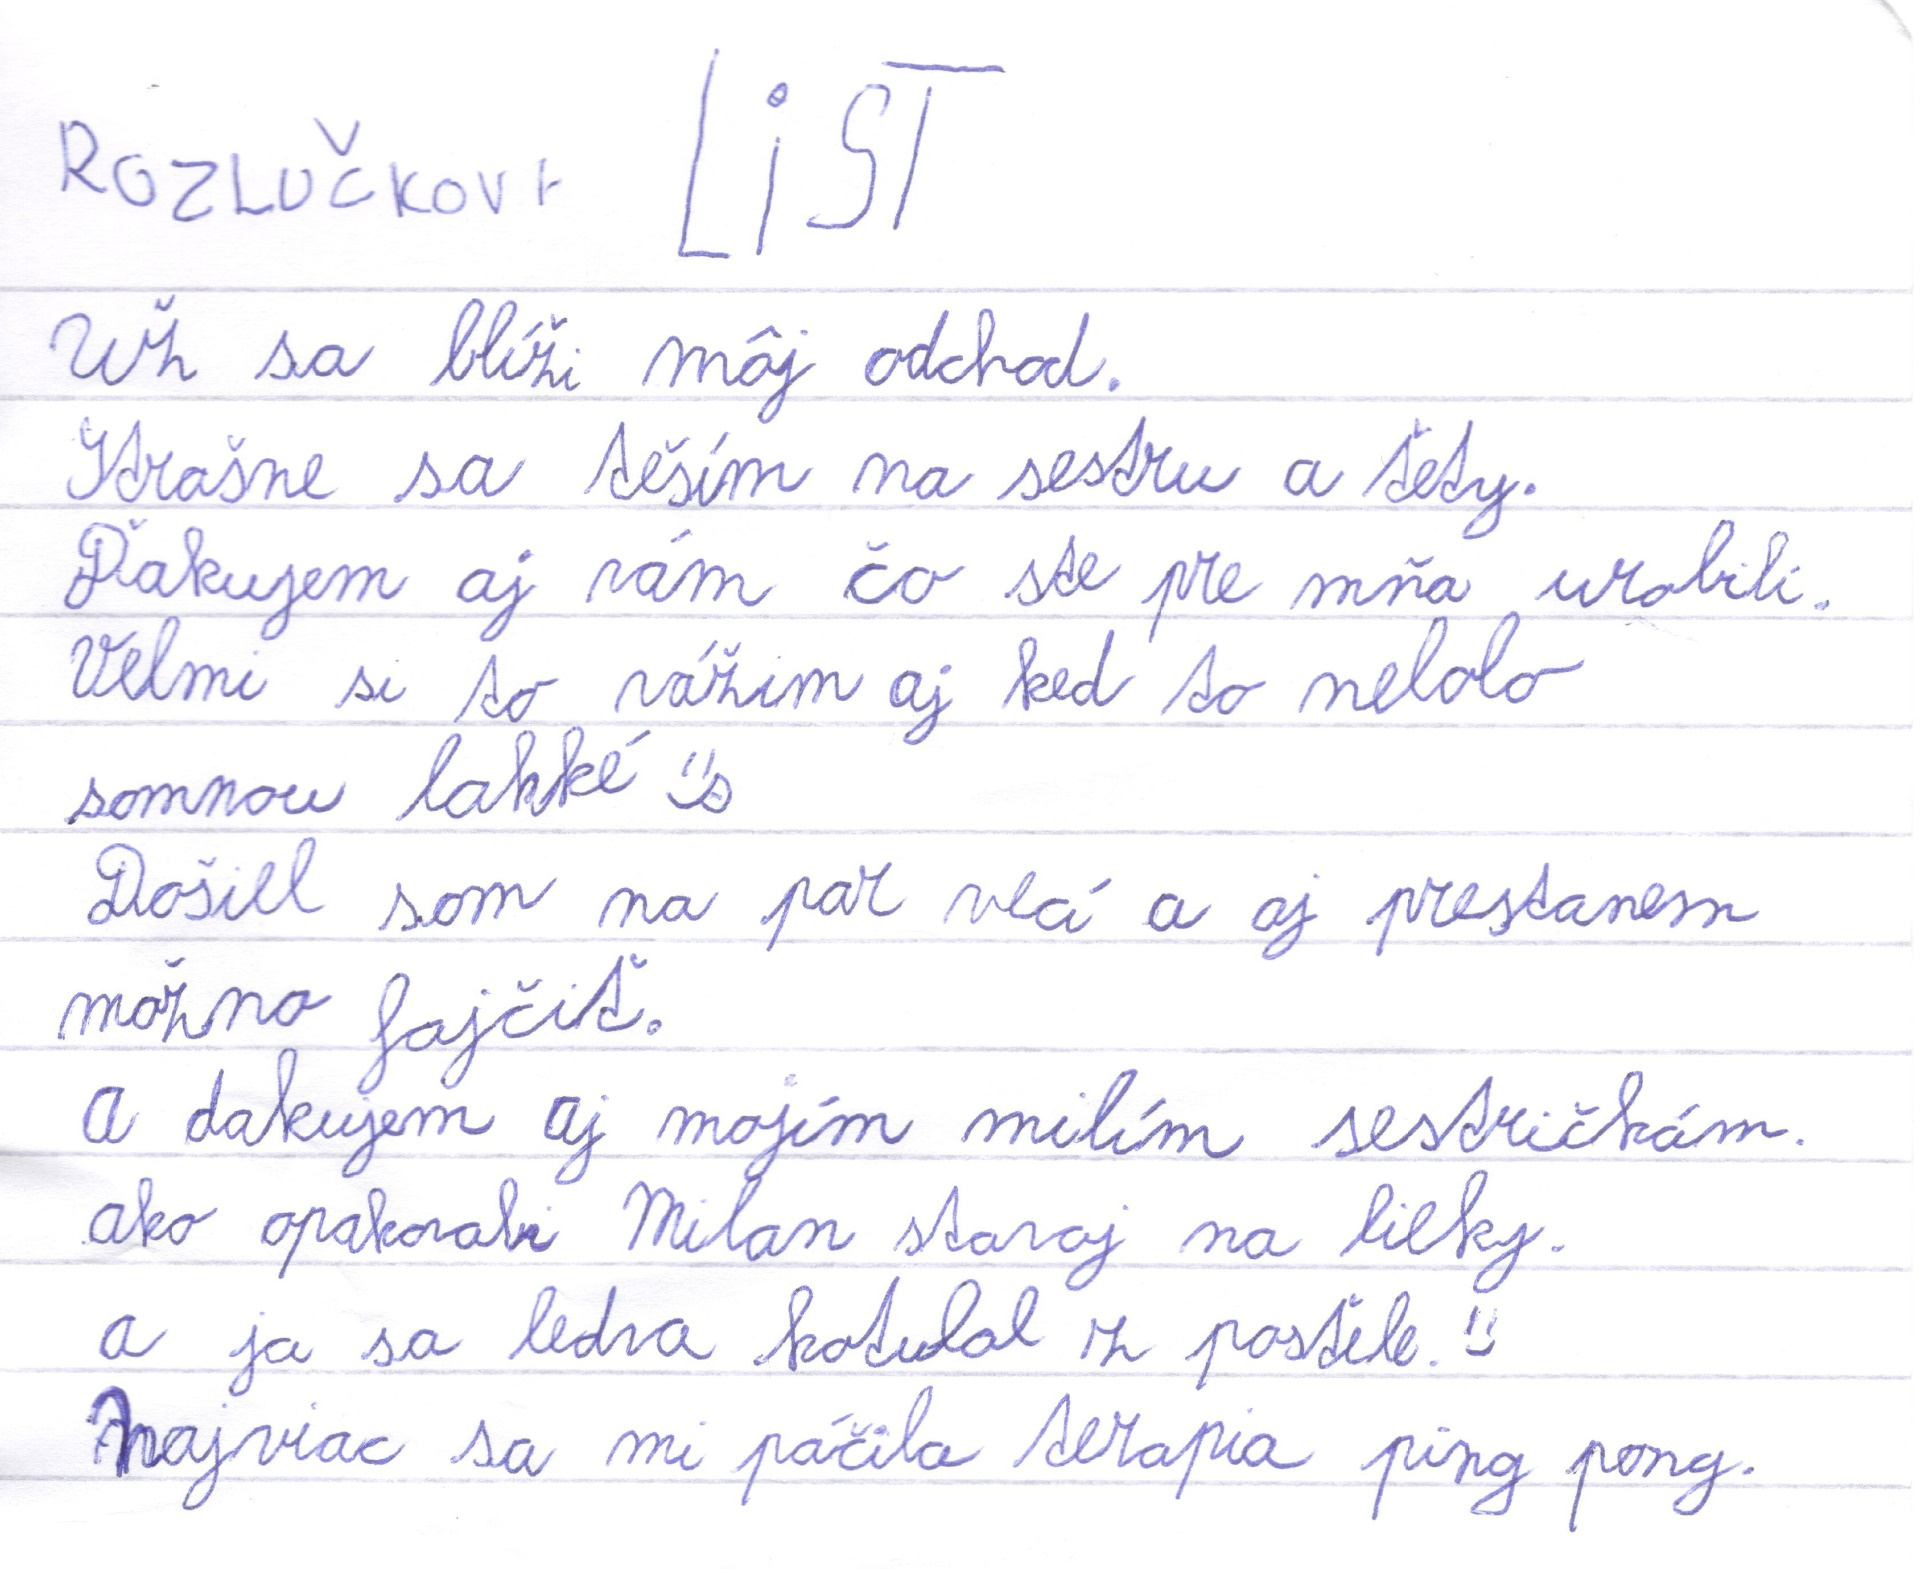 ROZLUČKOVÝ LiST
Už sa blíži môj odchod.
Strašne sa těším na sestru a těty.
Ďakujem aj vám čo ste pre mňa urobili.
Velmi si to vážim aj ked to nelolo
somnou lahké
Došiel som na par vecí a aj prestanem
možno fajčiť.
a dakujem aj mojím milím sestričkám.
ako opakovali Milan stavaj na lieky.
a ja sa ledva kotulal z postěle.
Najviac sa mi páčila terapia ping pong.